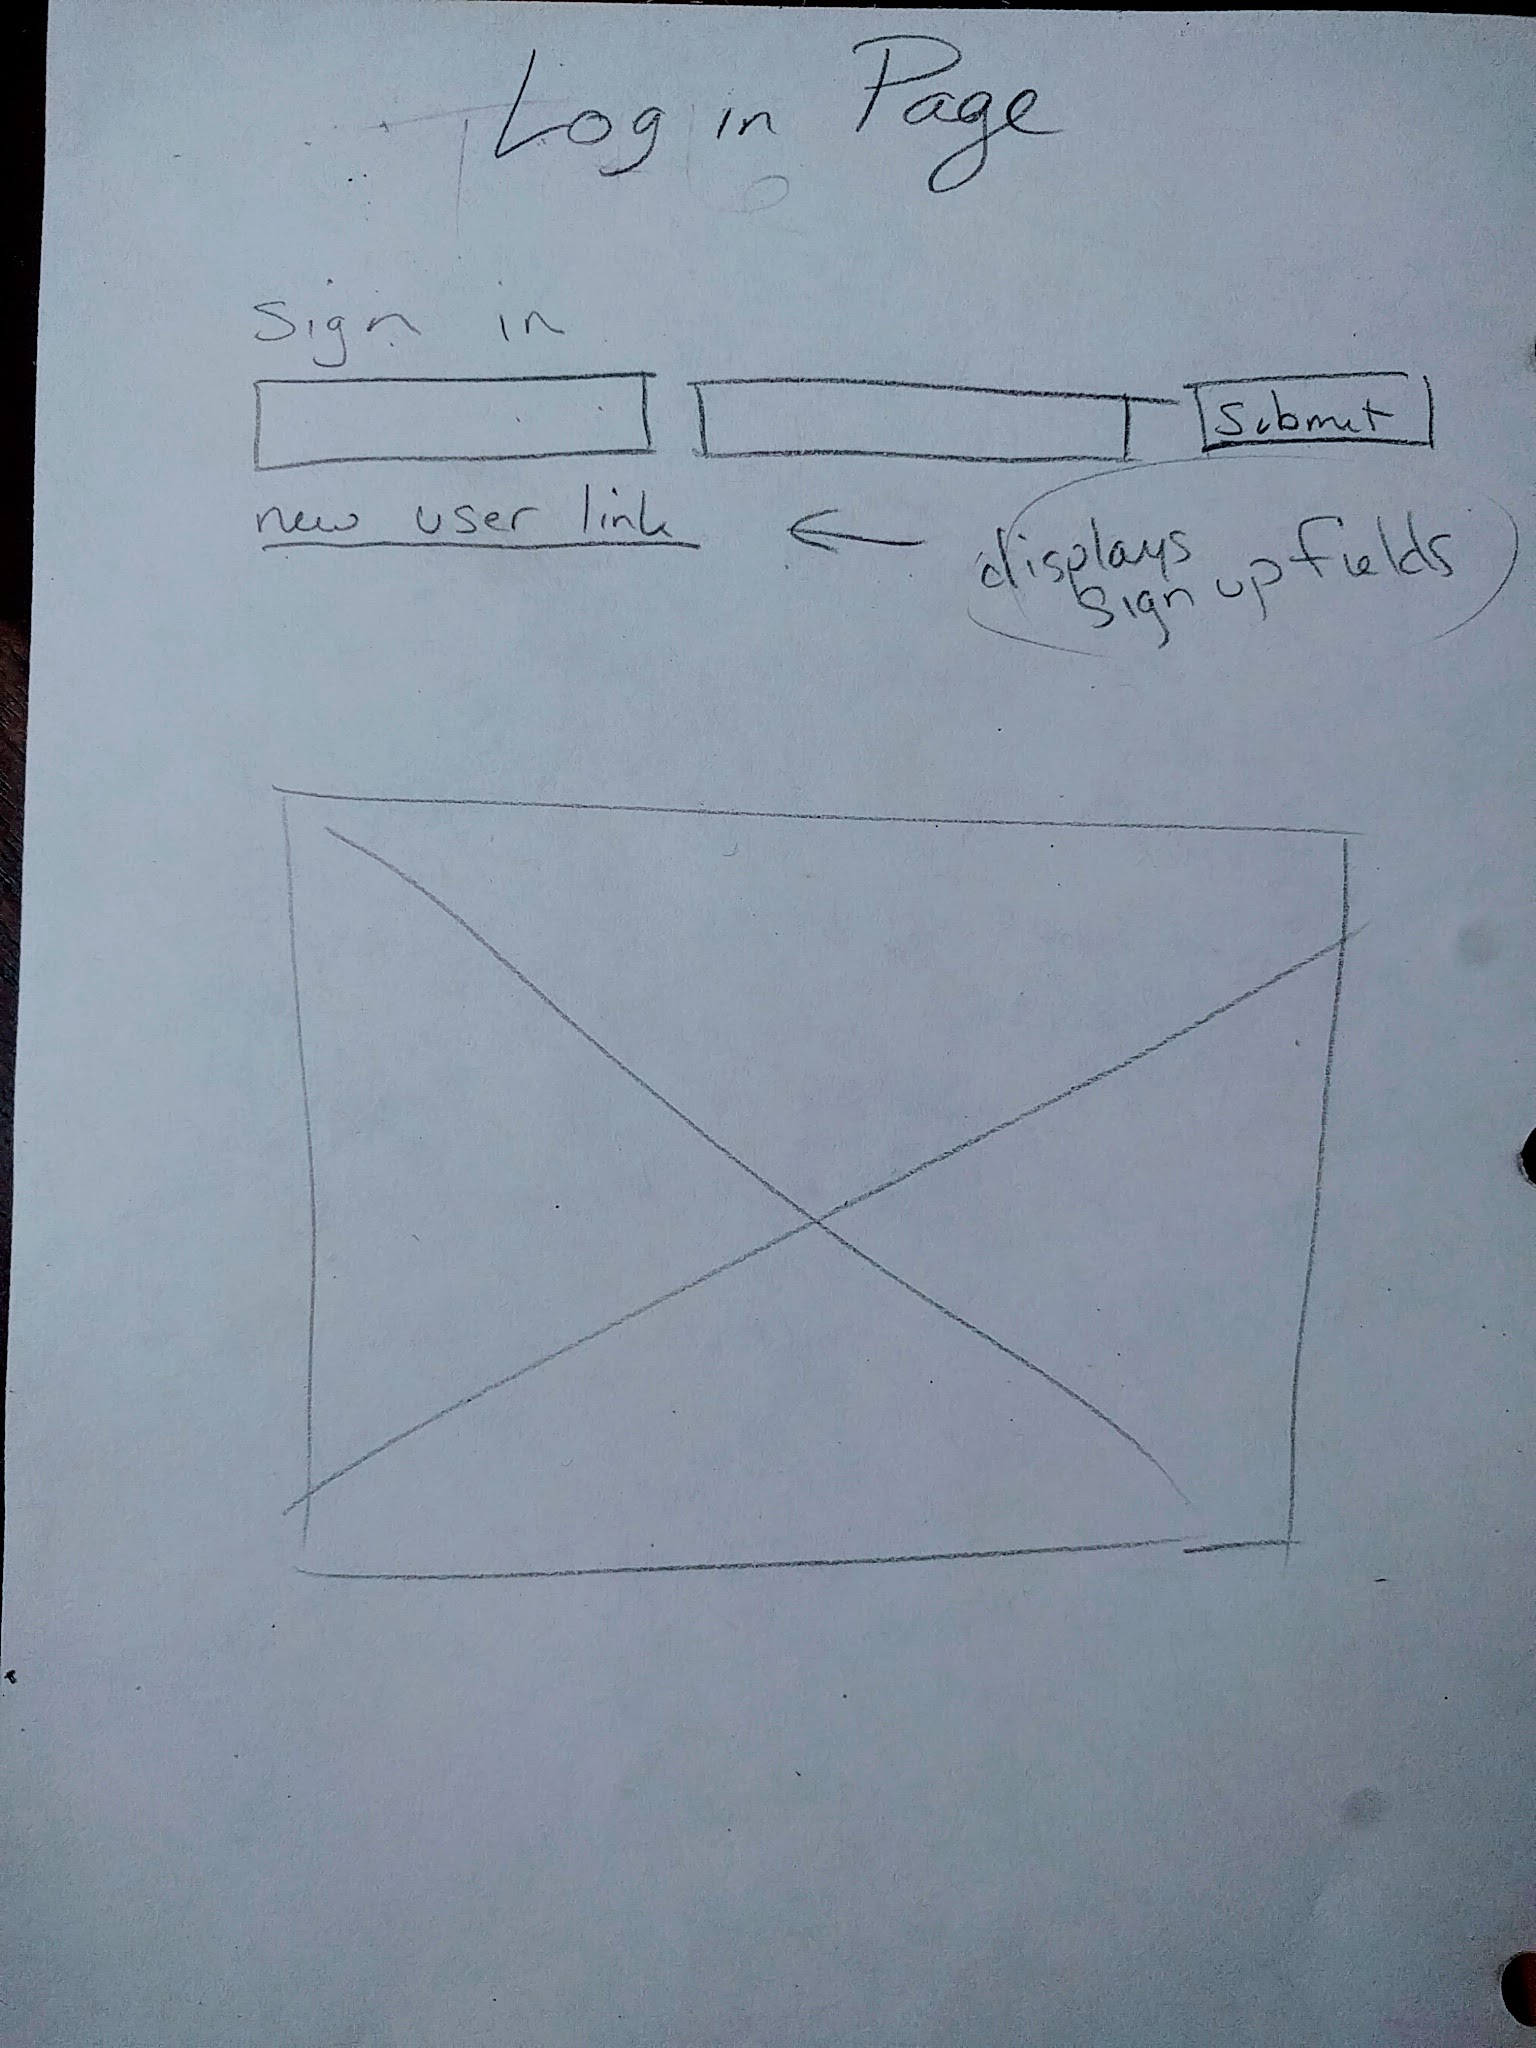 Log in Page
Sign in
Submit
new user link
displays
sign up fields